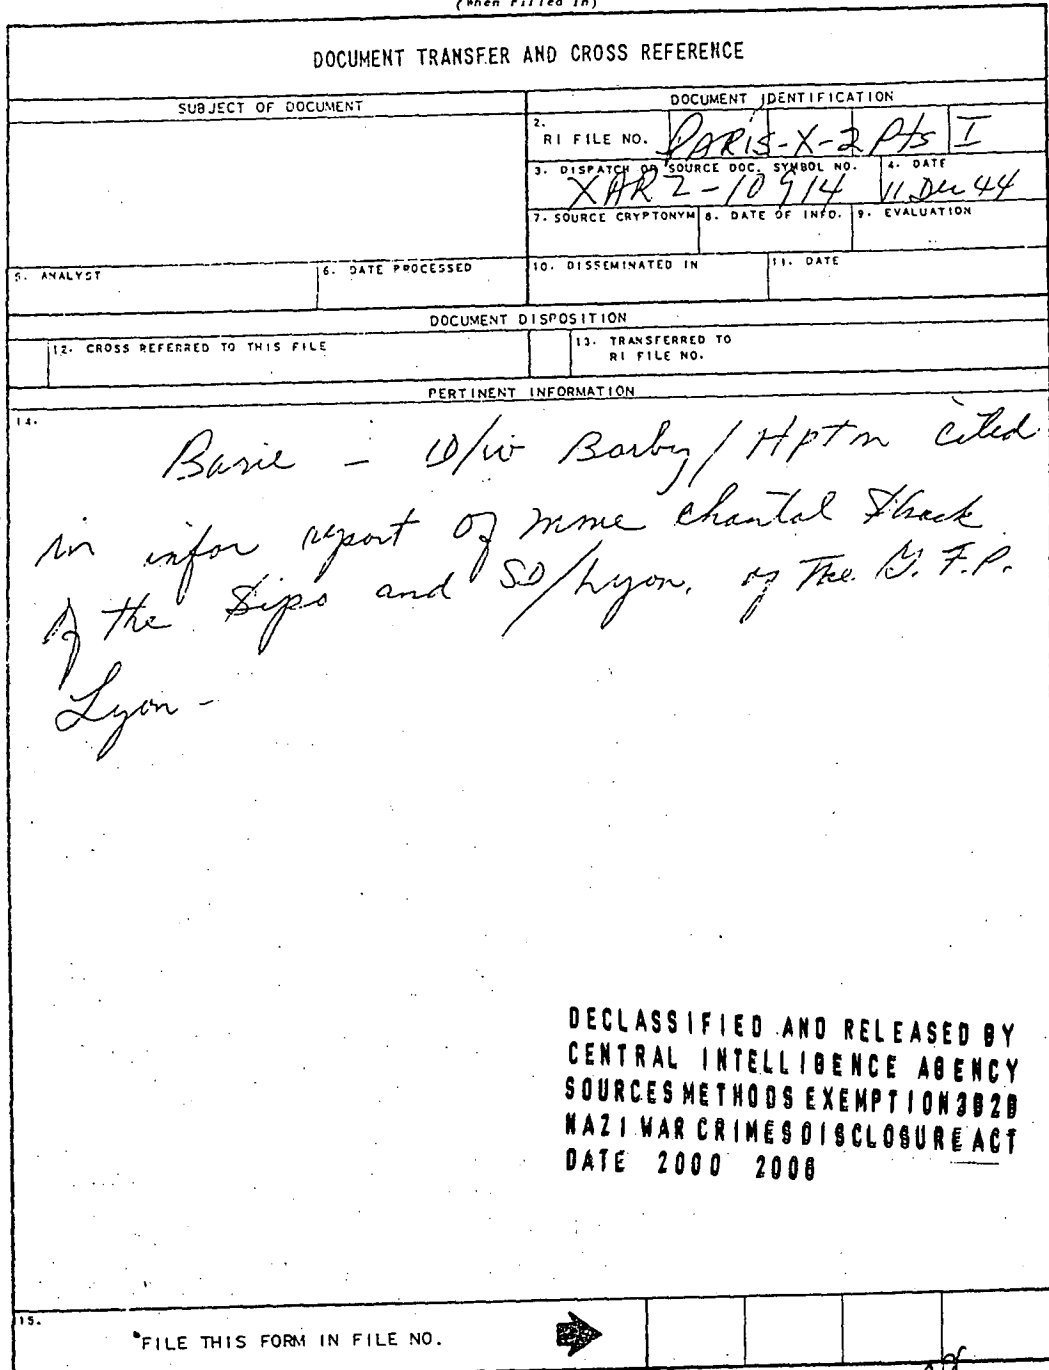 (When Filled In)
DOCUMENT TRANSFER AND CROSS REFERENCE
SUBJECT OF DOCUMENT
DOCUMENT IDENTIFICATION
2. RI FILE NO. PARIS-X-2 Pts I
3. DISPATCH OR SOURCE DOC. SYMBOL NO.
XARZ-10914
4. DATE
11 Dec 44
7. SOURCE CRYPTONYM
8. DATE OF INFO.
9. EVALUATION
5. ANALYST
6. DATE PROCESSED
10. DISSEMINATED IN
11. DATE
DOCUMENT DISPOSITION
12. CROSS REFERRED TO THIS FILE
13. TRANSFERRED TO
RI FILE NO.
PERTINENT INFORMATION
14.
- Barby / Hptm cited
in infor report of Mme Chantal
of the Sipo and SD/Lyon. of The G.F.P.
Lyon -
DECLASSIFIED AND RELEASED BY
CENTRAL INTELLIGENCE AGENCY
SOURCES METHODS EXEMPTION 3B2B
NAZI WAR CRIMES DISCLOSURE ACT
DATE 2000 2006
15.
FILE THIS FORM IN FILE NO.